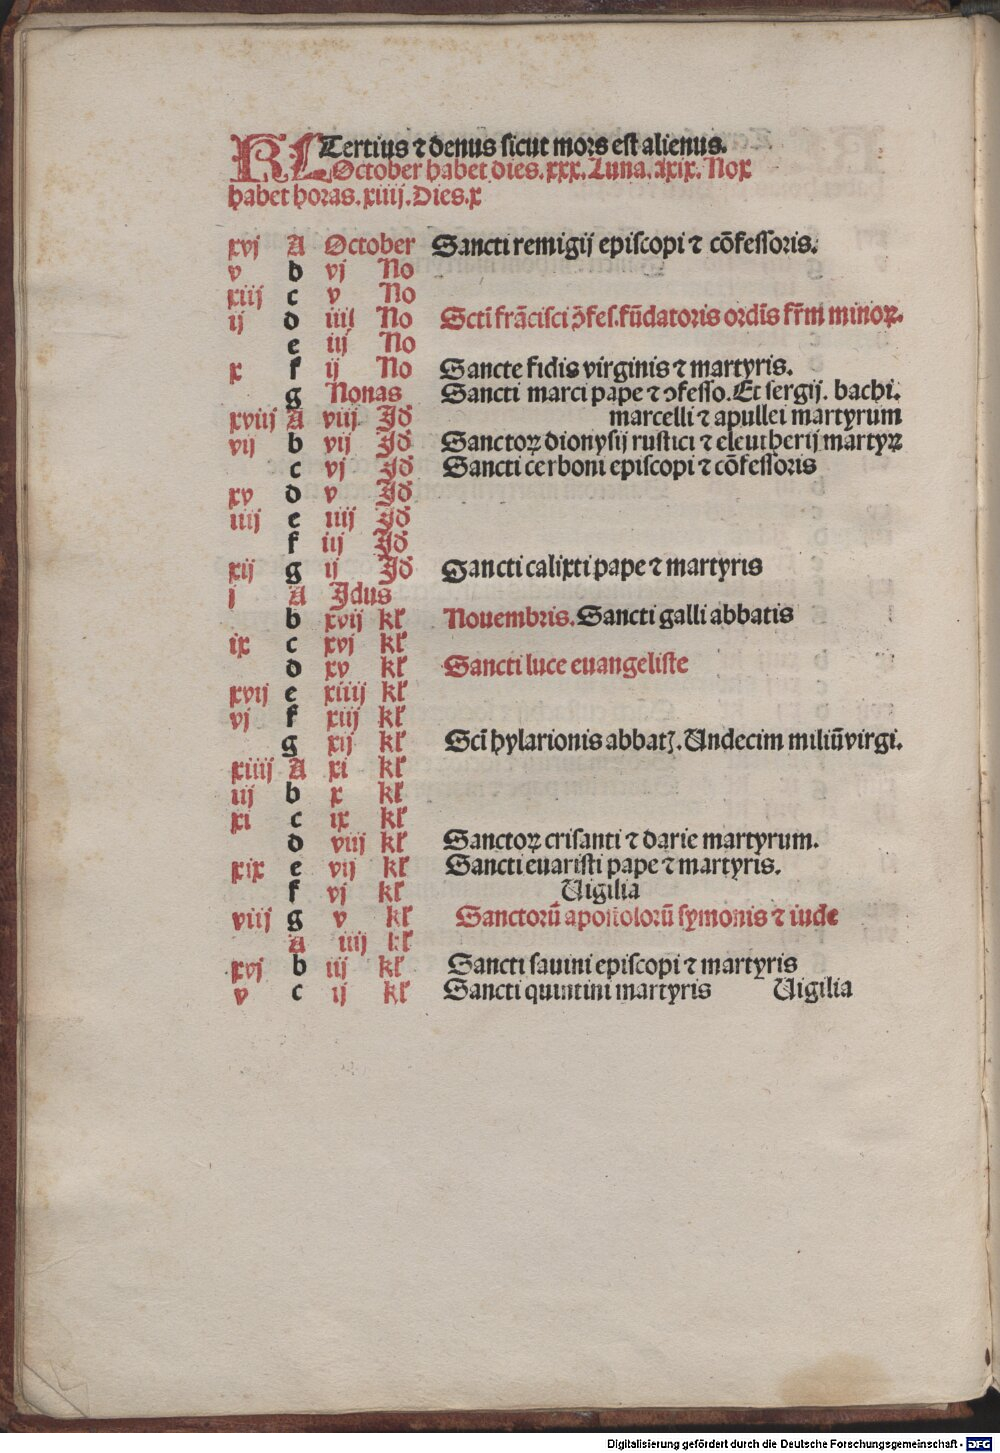 KL Tertius ⁊ denus sicut mors est alienus.
October habet dies. xxx. Luna. xxix. Nox
habet horas. xiiij. Dies. x
xvj A October Sancti remigij episcopi ⁊ cōfessoris.
v b vj No
xiij c v No
ij d iiij No Scti frācisci ↄ̄fes. fūdatoris ordīs fr̄m minoꝝ.
e iij No
x f ij No Sancte fidis virginis ⁊ martyris.
g Nonas Sancti marci pape ⁊ ↄfesso. Et sergij. bachi.
xviij A viij Id marcelli ⁊ apullei martyrum
vij b vij Id Sanctoꝝ dionysij rustici ⁊ eleutherij martyꝝ
c vj Id Sancti cerboni episcopi ⁊ cōfessoris
xv d v Id
iiij e iiij Id
f iij Id
xij g ij Id Sancti calixti pape ⁊ martyris
j A Idus
b xvij kl̄ Nouembris. Sancti galli abbatis
ix c xvj kl̄
d xv kl̄ Sancti luce euangeliste
xvij e xiiij kl̄
vj f xiij kl̄
g xij kl̄ Scī hylarionis abbatꝭ. Undecim miliū virgi.
xiiij A xi kl̄
iij b x kl̄
xi c ix kl̄
d viij kl̄ Sanctoꝝ crisanti ⁊ darie martyrum.
xix e vij kl̄ Sancti euaristi pape ⁊ martyris.
f vj kl̄ Uigilia
viij g v kl̄ Sanctorū apostolorū symonis ⁊ iude
A iiij kl̄
xvj b iij kl̄ Sancti sauini episcopi ⁊ martyris
v c ij kl̄ Sancti quintini martyris Uigilia
Digitalisierung gefördert durch die Deutsche Forschungsgemeinschaft - DFG